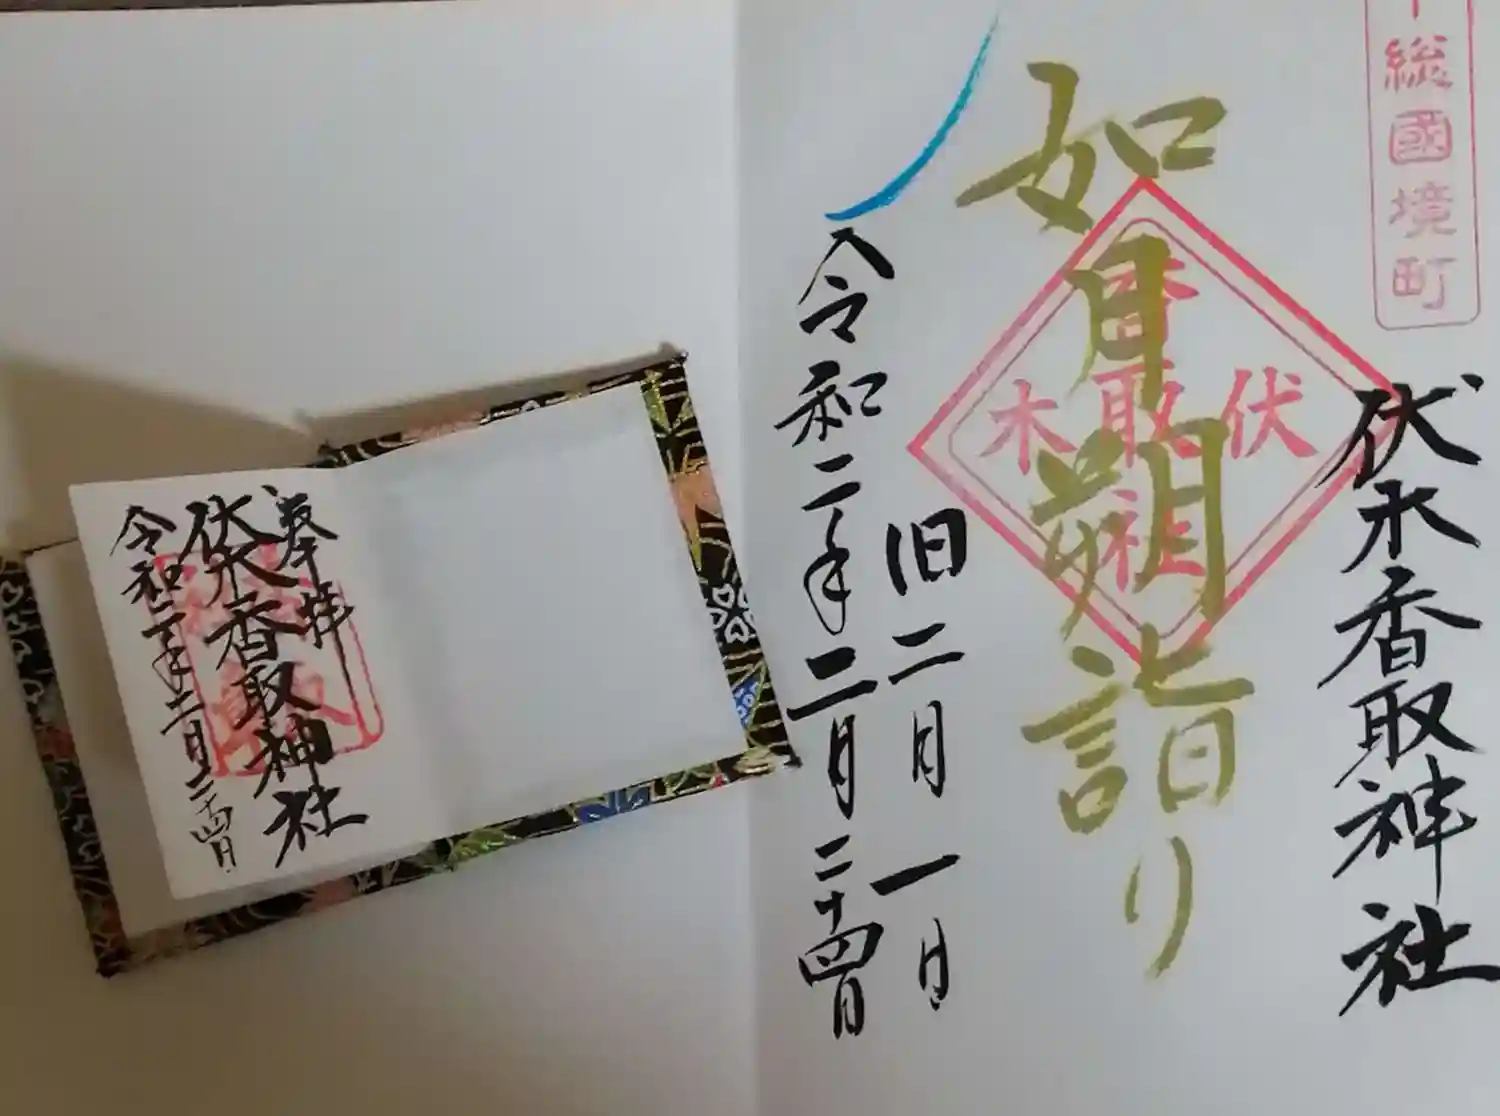 総國境町
伏木香取神社
如月朔詣り
伏木
香取社
旧二月一日
令和二年二月二十四日
奉拝
伏木香取神社
令和二年二月二十四日